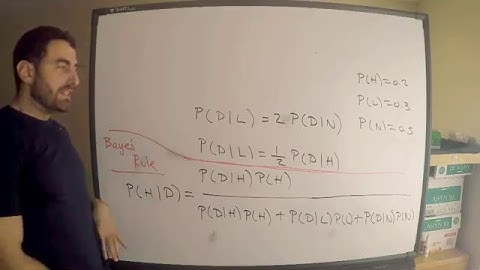 P(H)=0.2
P(L)=0.3
P(N)=0.5
P(D|L)=2P(D|N)
P(D|L)=½P(D|H)
Baye's
Rule
P(D|H)P(H)
P(H|D)=
P(D|H)P(H)+P(D|L)P(L)+P(D|N)P(N)